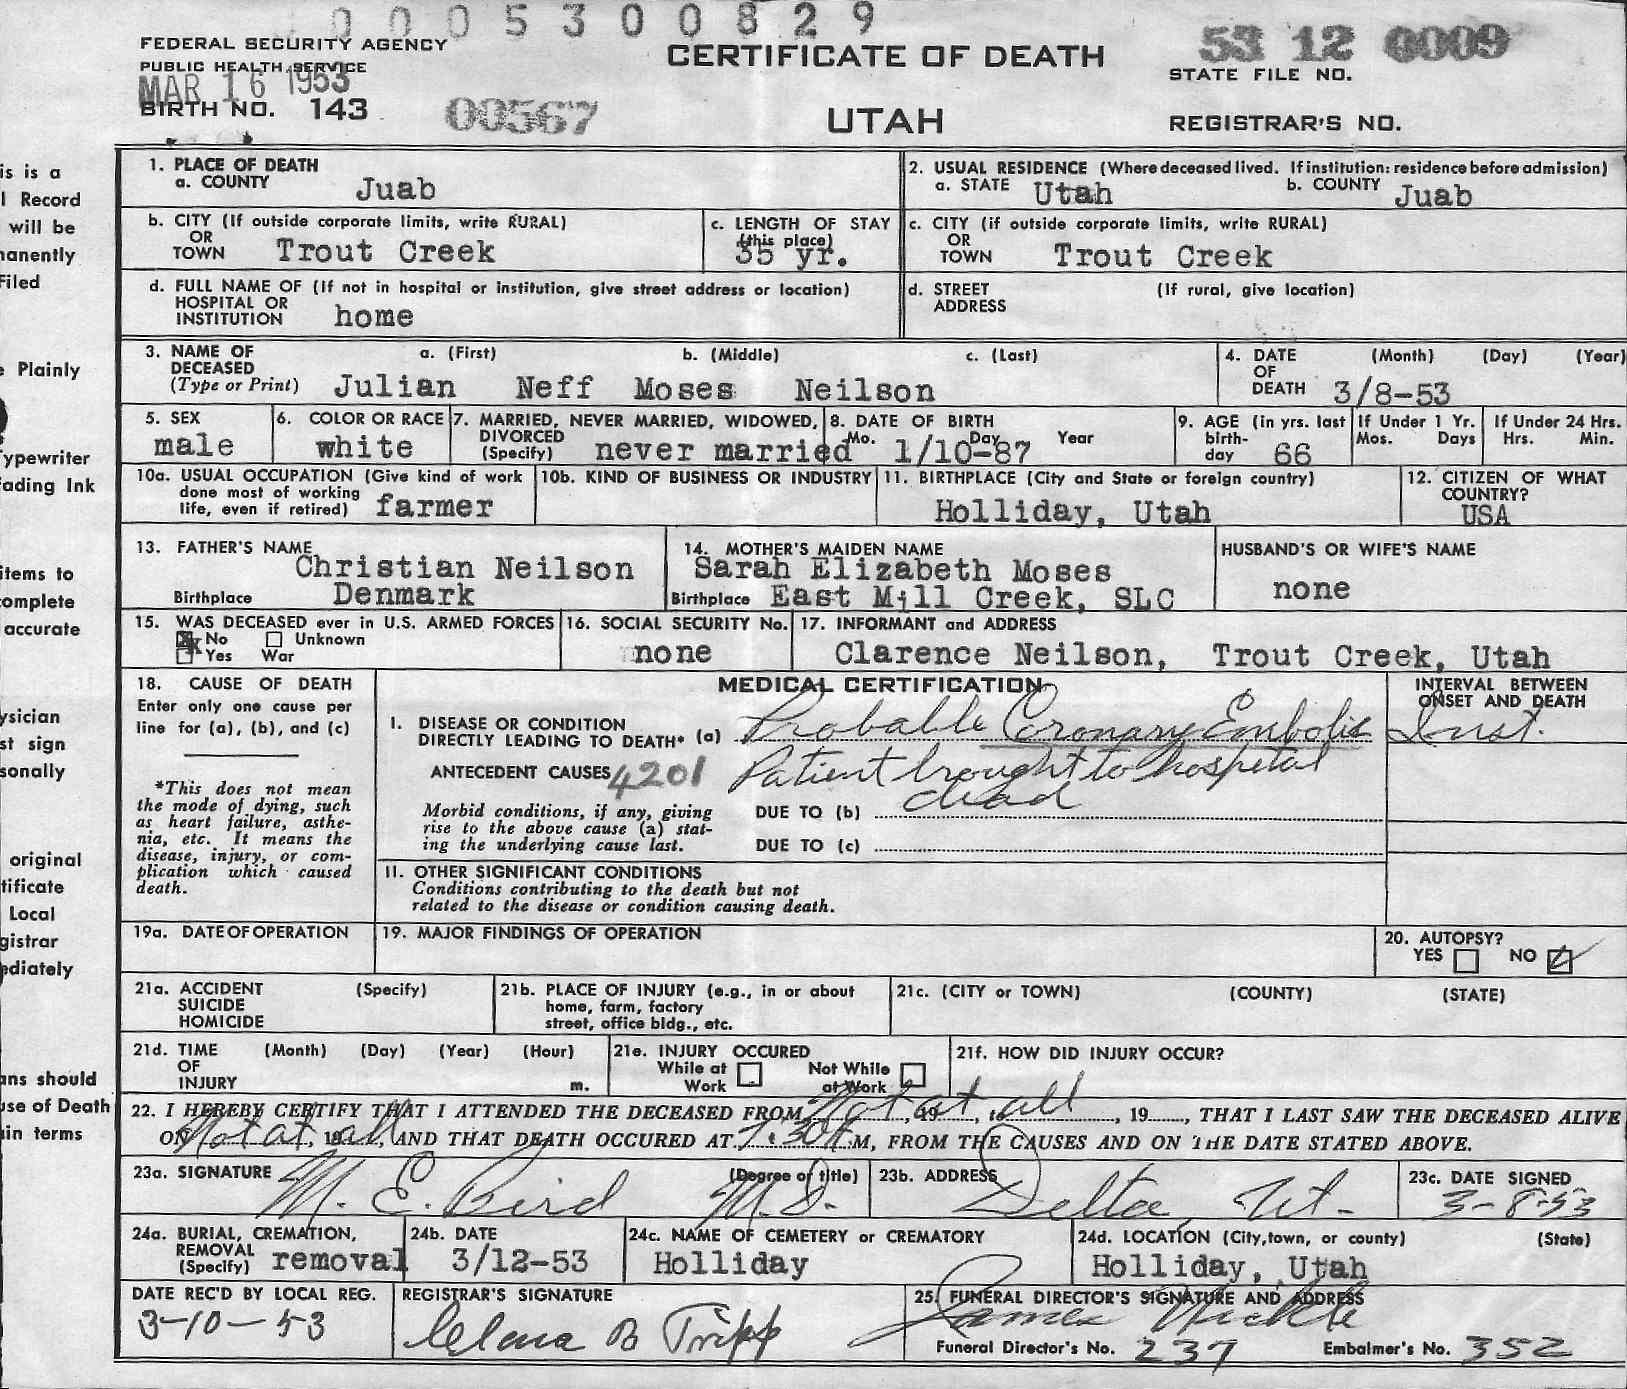 0005300829
FEDERAL SECURITY AGENCY
PUBLIC HEALTH SERVICE
MAR 16 1953
BIRTH NO. 143
00567
CERTIFICATE OF DEATH
UTAH
53 12 0009
STATE FILE NO.
REGISTRAR'S NO.
is is a
l Record
will be
nanently
Filed
e Plainly
ypewriter
fading Ink
items to
complete
accurate
ysician
st sign
sonally
original
tificate
Local
gistrar
ediately
ans should
use of Death
ain terms
1. PLACE OF DEATH
a. COUNTY Juab
2. USUAL RESIDENCE (Where deceased lived. If institution: residence before admission)
a. STATE Utah b. COUNTY Juab
b. CITY (If outside corporate limits, write RURAL)
OR
TOWN Trout Creek
c. LENGTH OF STAY
(this place)
35 yr.
c. CITY (if outside corporate limits, write RURAL)
OR
TOWN Trout Creek
d. FULL NAME OF (If not in hospital or institution, give street address or location)
HOSPITAL OR
INSTITUTION home
d. STREET (If rural, give location)
ADDRESS
3. NAME OF a. (First) b. (Middle) c. (Last)
DECEASED
(Type or Print) Julian Neff Moses Neilson
4. DATE (Month) (Day) (Year)
OF
DEATH 3/8-53
5. SEX
male
6. COLOR OR RACE
white
7. MARRIED, NEVER MARRIED, WIDOWED,
DIVORCED
(Specify) never married
8. DATE OF BIRTH
Mo. Day Year
1/10-87
9. AGE (in yrs. last
birth-
day 66
If Under 1 Yr.
Mos. Days
If Under 24 Hrs.
Hrs. Min.
10a. USUAL OCCUPATION (Give kind of work
done most of working
life, even if retired) farmer
10b. KIND OF BUSINESS OR INDUSTRY
11. BIRTHPLACE (City and State or foreign country)
Holliday, Utah
12. CITIZEN OF WHAT
COUNTRY?
USA
13. FATHER'S NAME
Christian Neilson
Birthplace Denmark
14. MOTHER'S MAIDEN NAME
Sarah Elizabeth Moses
Birthplace East Mill Creek, SLC
HUSBAND'S OR WIFE'S NAME
none
15. WAS DECEASED ever in U.S. ARMED FORCES
No Unknown
Yes War
16. SOCIAL SECURITY No.
none
17. INFORMANT and ADDRESS
Clarence Neilson, Trout Creek, Utah
18. CAUSE OF DEATH
Enter only one cause per
line for (a), (b), and (c)
*This does not mean
the mode of dying, such
as heart failure, asthe-
nia, etc. It means the
disease, injury, or com-
plication which caused
death.
MEDICAL CERTIFICATION
INTERVAL BETWEEN
ONSET AND DEATH
I. DISEASE OR CONDITION
DIRECTLY LEADING TO DEATH* (a) Probable Coronary Embolis Inst.
ANTECEDENT CAUSES 4201 Patient brought to hospital
dead
Morbid conditions, if any, giving
rise to the above cause (a) stat-
ing the underlying cause last.
DUE TO (b)
DUE TO (c)
II. OTHER SIGNIFICANT CONDITIONS
Conditions contributing to the death but not
related to the disease or condition causing death.
19a. DATE OF OPERATION
19. MAJOR FINDINGS OF OPERATION
20. AUTOPSY?
YES NO
21a. ACCIDENT (Specify)
SUICIDE
HOMICIDE
21b. PLACE OF INJURY (e.g., in or about
home, farm, factory
street, office bldg., etc.
21c. (CITY or TOWN) (COUNTY) (STATE)
21d. TIME (Month) (Day) (Year) (Hour)
OF
INJURY m.
21e. INJURY OCCURED
While at Not While
Work at Work
21f. HOW DID INJURY OCCUR?
22. I HEREBY CERTIFY THAT I ATTENDED THE DECEASED FROM Not at all, 19, THAT I LAST SAW THE DECEASED ALIVE
ON Not at all, AND THAT DEATH OCCURED AT 7:30 A M, FROM THE CAUSES AND ON THE DATE STATED ABOVE.
23a. SIGNATURE (Degree or title)
M. E. Bird M.D.
23b. ADDRESS
Delta, Ut.
23c. DATE SIGNED
3-8-53
24a. BURIAL, CREMATION,
REMOVAL
(Specify) removal
24b. DATE
3/12-53
24c. NAME OF CEMETERY OR CREMATORY
Holliday
24d. LOCATION (City, town, or county) (State)
Holliday, Utah
DATE REC'D BY LOCAL REG.
3-10-53
REGISTRAR'S SIGNATURE
B Tripp
25. FUNERAL DIRECTOR'S SIGNATURE AND ADDRESS
James Nickle
Funeral Director's No. 237 Embalmer's No. 352